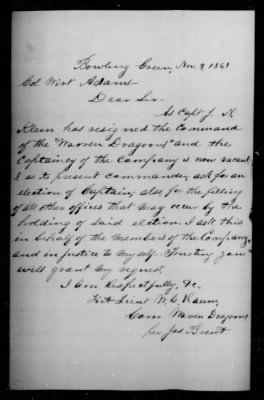 Bowling Green, Nov. 3, 1861
Col. Wirt Adams-
Dear Sir-
As Capt J. N.
Klein has resigned the Command
of the "Warren Dragoons" and the
Captaincy of the Company is now vacant,
I as its present commander, ask for an
election of Captain, also for the filling
of all other offices that may occur by the
holding of said election. I ask this
in behalf of the members of the Company,
and in justice to myself. Trusting you
will grant my request.
I am Respectfully, &c.
First Lieut W. C.
Com Warren Dragoons
per Jas Brent